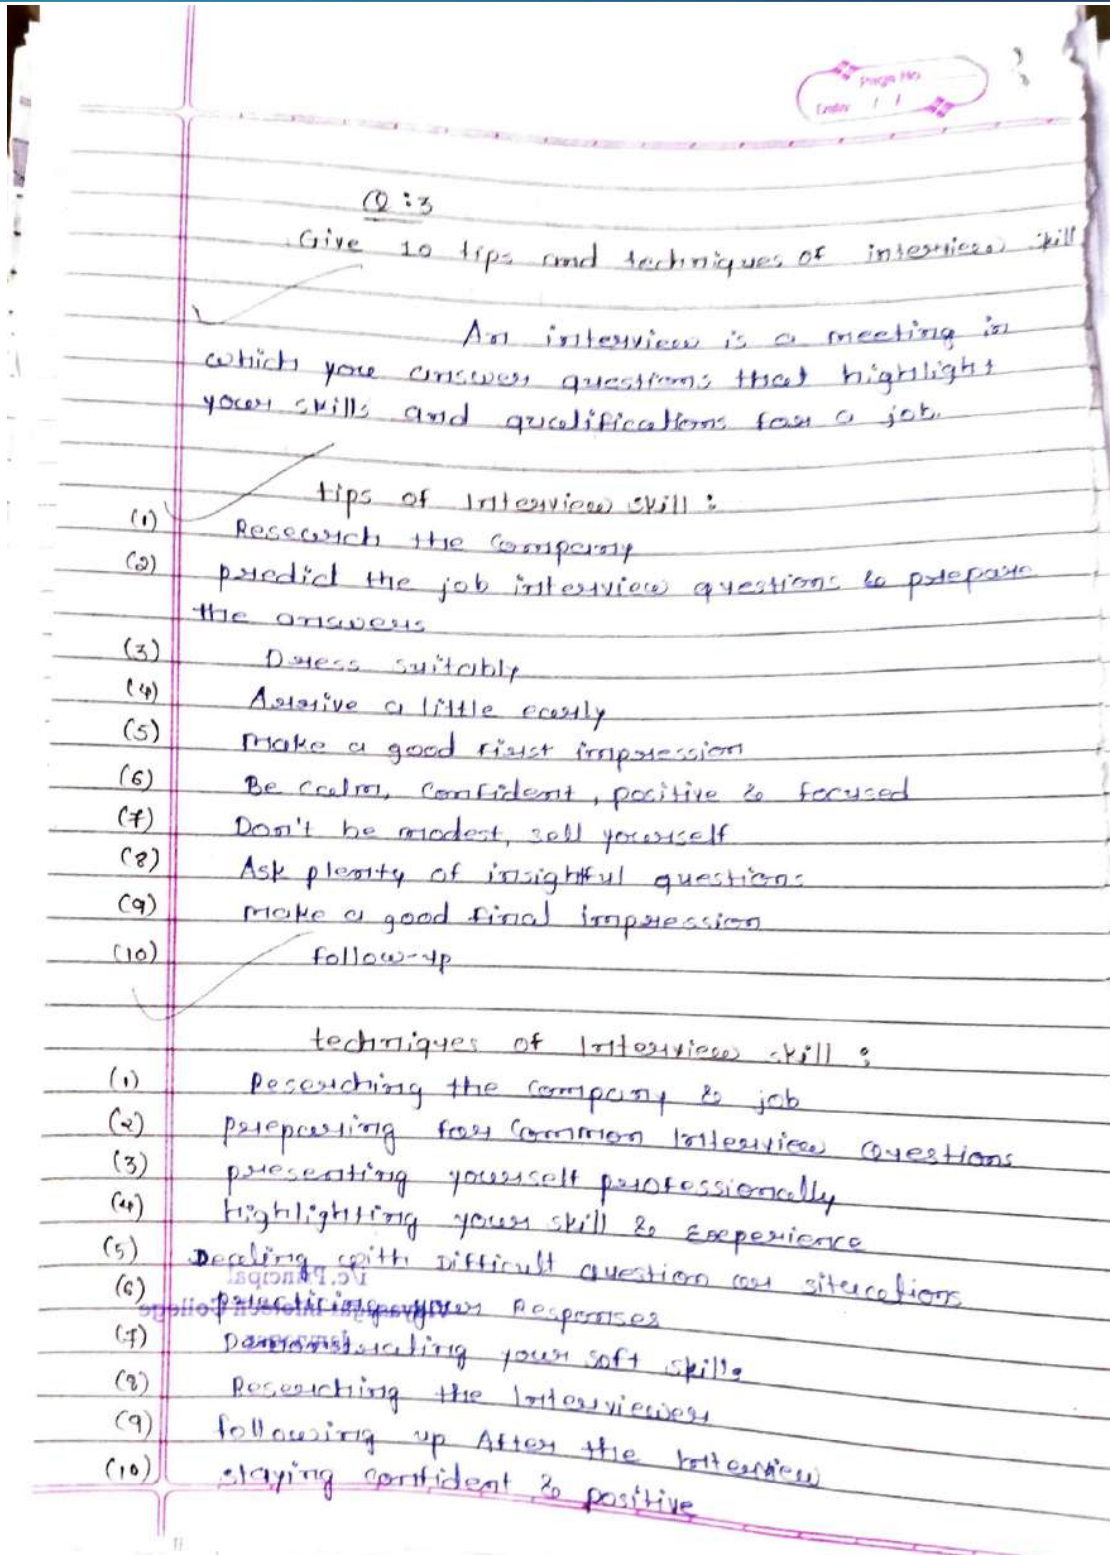 Page No.
Date / /
Q : 3
Give 10 tips and techniques of interview skill
An interview is a meeting in
which you answer questions that highlight
your skills and qualifications for a job.
tips of Interview skill :
(1) Research the Company
(2) predict the job interview questions & prepare
the answers
(3) Dress suitably
(4) Arrive a little early
(5) make a good first impression
(6) Be calm, Confident, positive & focused
(7) Don't be modest, sell yourself
(8) Ask plenty of insightful questions
(9) make a good final impression
(10) follow-up
techniques of Interview skill :
(1) Reserching the company & job
(2) preparing for Common Interview Questions
(3) presenting yourself professionally
(4) highlighting your skill & Experience
(5) Dealing with Difficult question or situcations
I/c. Principal
(6) practicing your Responses
College
(7) Demonstrating your soft skills
(8) Reserching the Interviewer
(9) following up After the Interview
(10) staying confident & positive